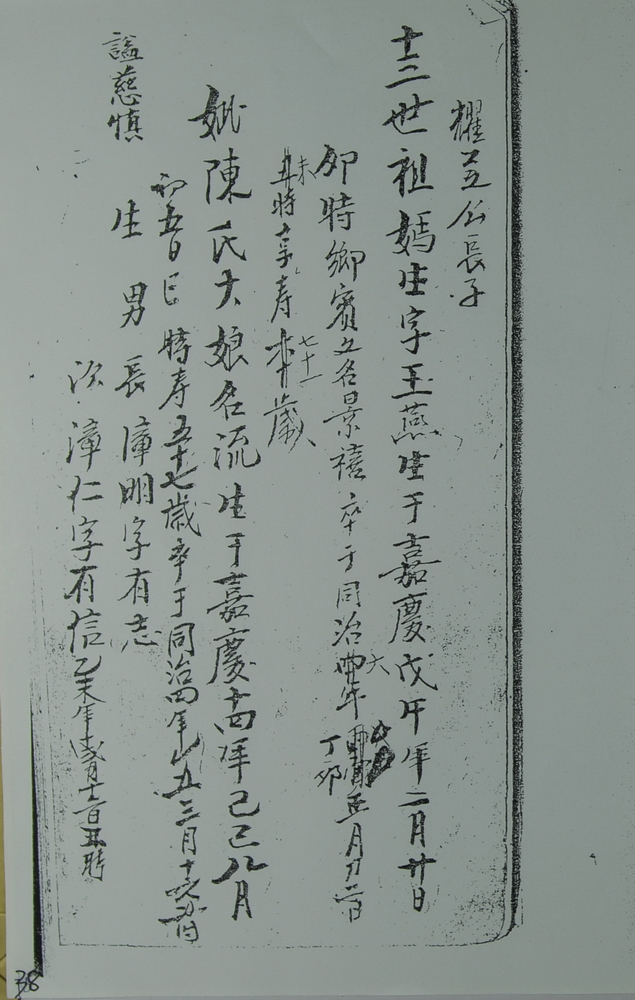 耀公長子
十三世祖媽生字玉燕生于嘉慶戊午年二月廿日
卯時鄉賓又名景禧卒于同治六年丁卯正月廿二日
未時享寿七十一歲
妣陳氏大娘名流生于嘉慶十四年己巳八月
初五日巳時寿五十七歲卒于同治四年乙丑三月十
諡慈慎
生男長漳明字有志
次漳仁字有信乙未年月十二日丑時
38